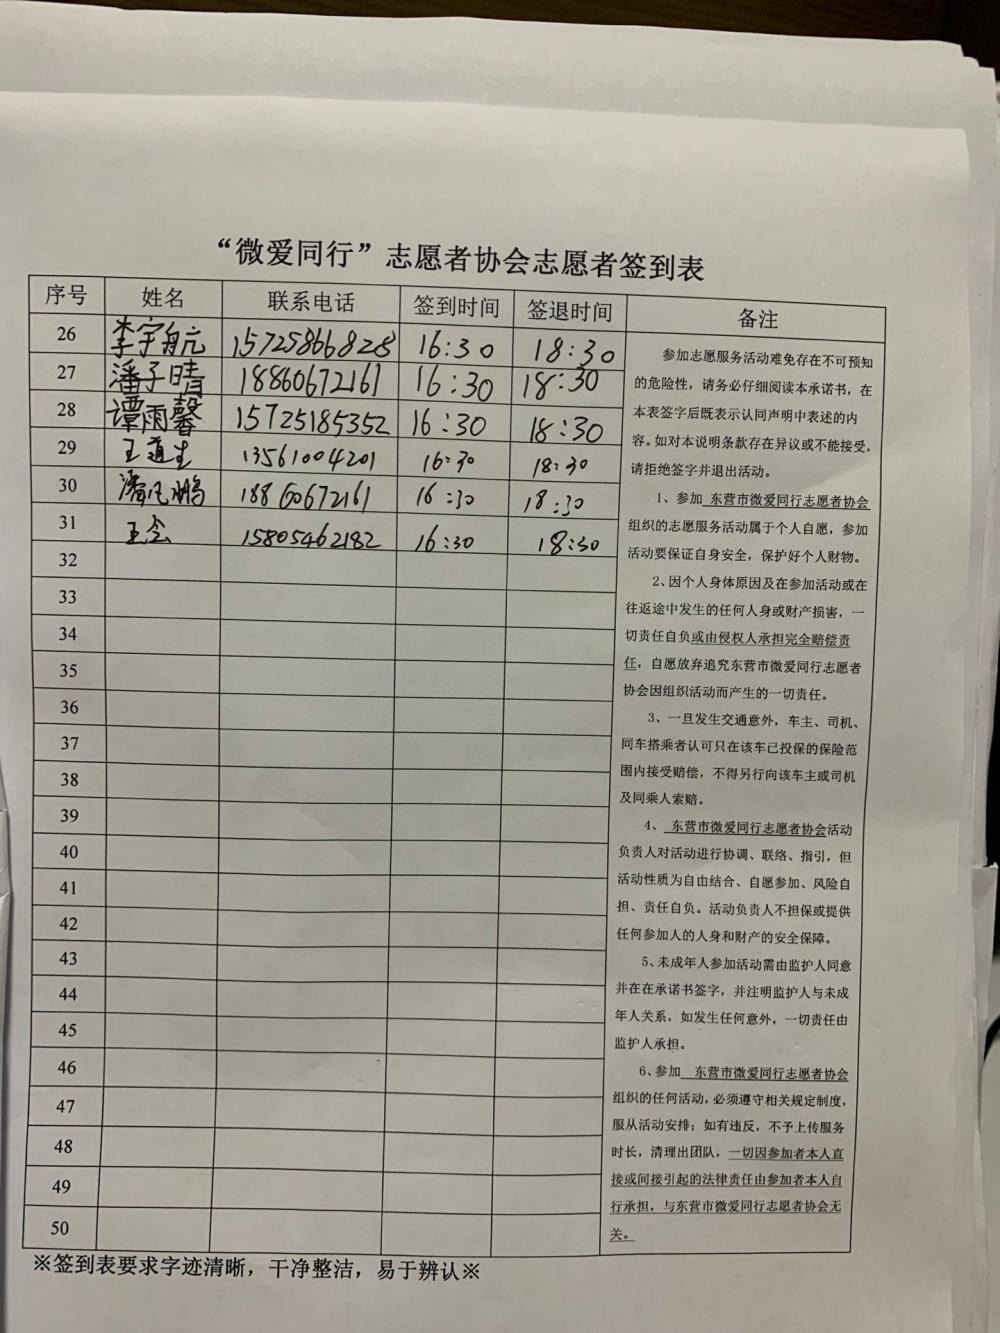 “微爱同行”志愿者协会志愿者签到表
序号 姓名 联系电话 签到时间 签退时间 备注
26 李宇航 15725866828 16:30 18:30
27 潘子晴 18860672161 16:30 18:30
28 谭雨馨 15725185352 16:30 18:30
29 王道生 13561004201 16:30 18:30
30 潘凡鹏 18860672161 16:30 18:30
31 王念 15805462182 16:30 18:30
32
33
34
35
36
37
38
39
40
41
42
43
44
45
46
47
48
49
50
参加志愿服务活动难免存在不可预知
的危险性，请务必仔细阅读本承诺书，在
本表签字后既表示认同声明中表述的内
容。如对本说明条款存在异议或不能接受，
请拒绝签字并退出活动。
1、参加 东营市微爱同行志愿者协会
组织的志愿服务活动属于个人自愿，参加
活动要保证自身安全，保护好个人财物。
2、因个人身体原因及在参加活动或在
往返途中发生的任何人身或财产损害，一
切责任自负或由侵权人承担完全赔偿责
任，自愿放弃追究东营市微爱同行志愿者
协会因组织活动而产生的一切责任。
3、一旦发生交通意外，车主、司机、
同车搭乘者认可只在该车已投保的保险范
围内接受赔偿，不得另行向该车主或司机
及同乘人索赔。
4、 东营市微爱同行志愿者协会活动
负责人对活动进行协调、联络、指引，但
活动性质为自由结合、自愿参加、风险自
担、责任自负。活动负责人不担保或提供
任何参加人的人身和财产的安全保障。
5、未成年人参加活动需由监护人同意
并在在承诺书签字，并注明监护人与未成
年人关系，如发生任何意外，一切责任由
监护人承担。
6、参加 东营市微爱同行志愿者协会
组织的任何活动，必须遵守相关规定制度，
服从活动安排；如有违反，不予上传服务
时长，清理出团队，一切因参加者本人直
接或间接引起的法律责任由参加者本人自
行承担，与东营市微爱同行志愿者协会无
关。
※签到表要求字迹清晰，干净整洁，易于辨认※